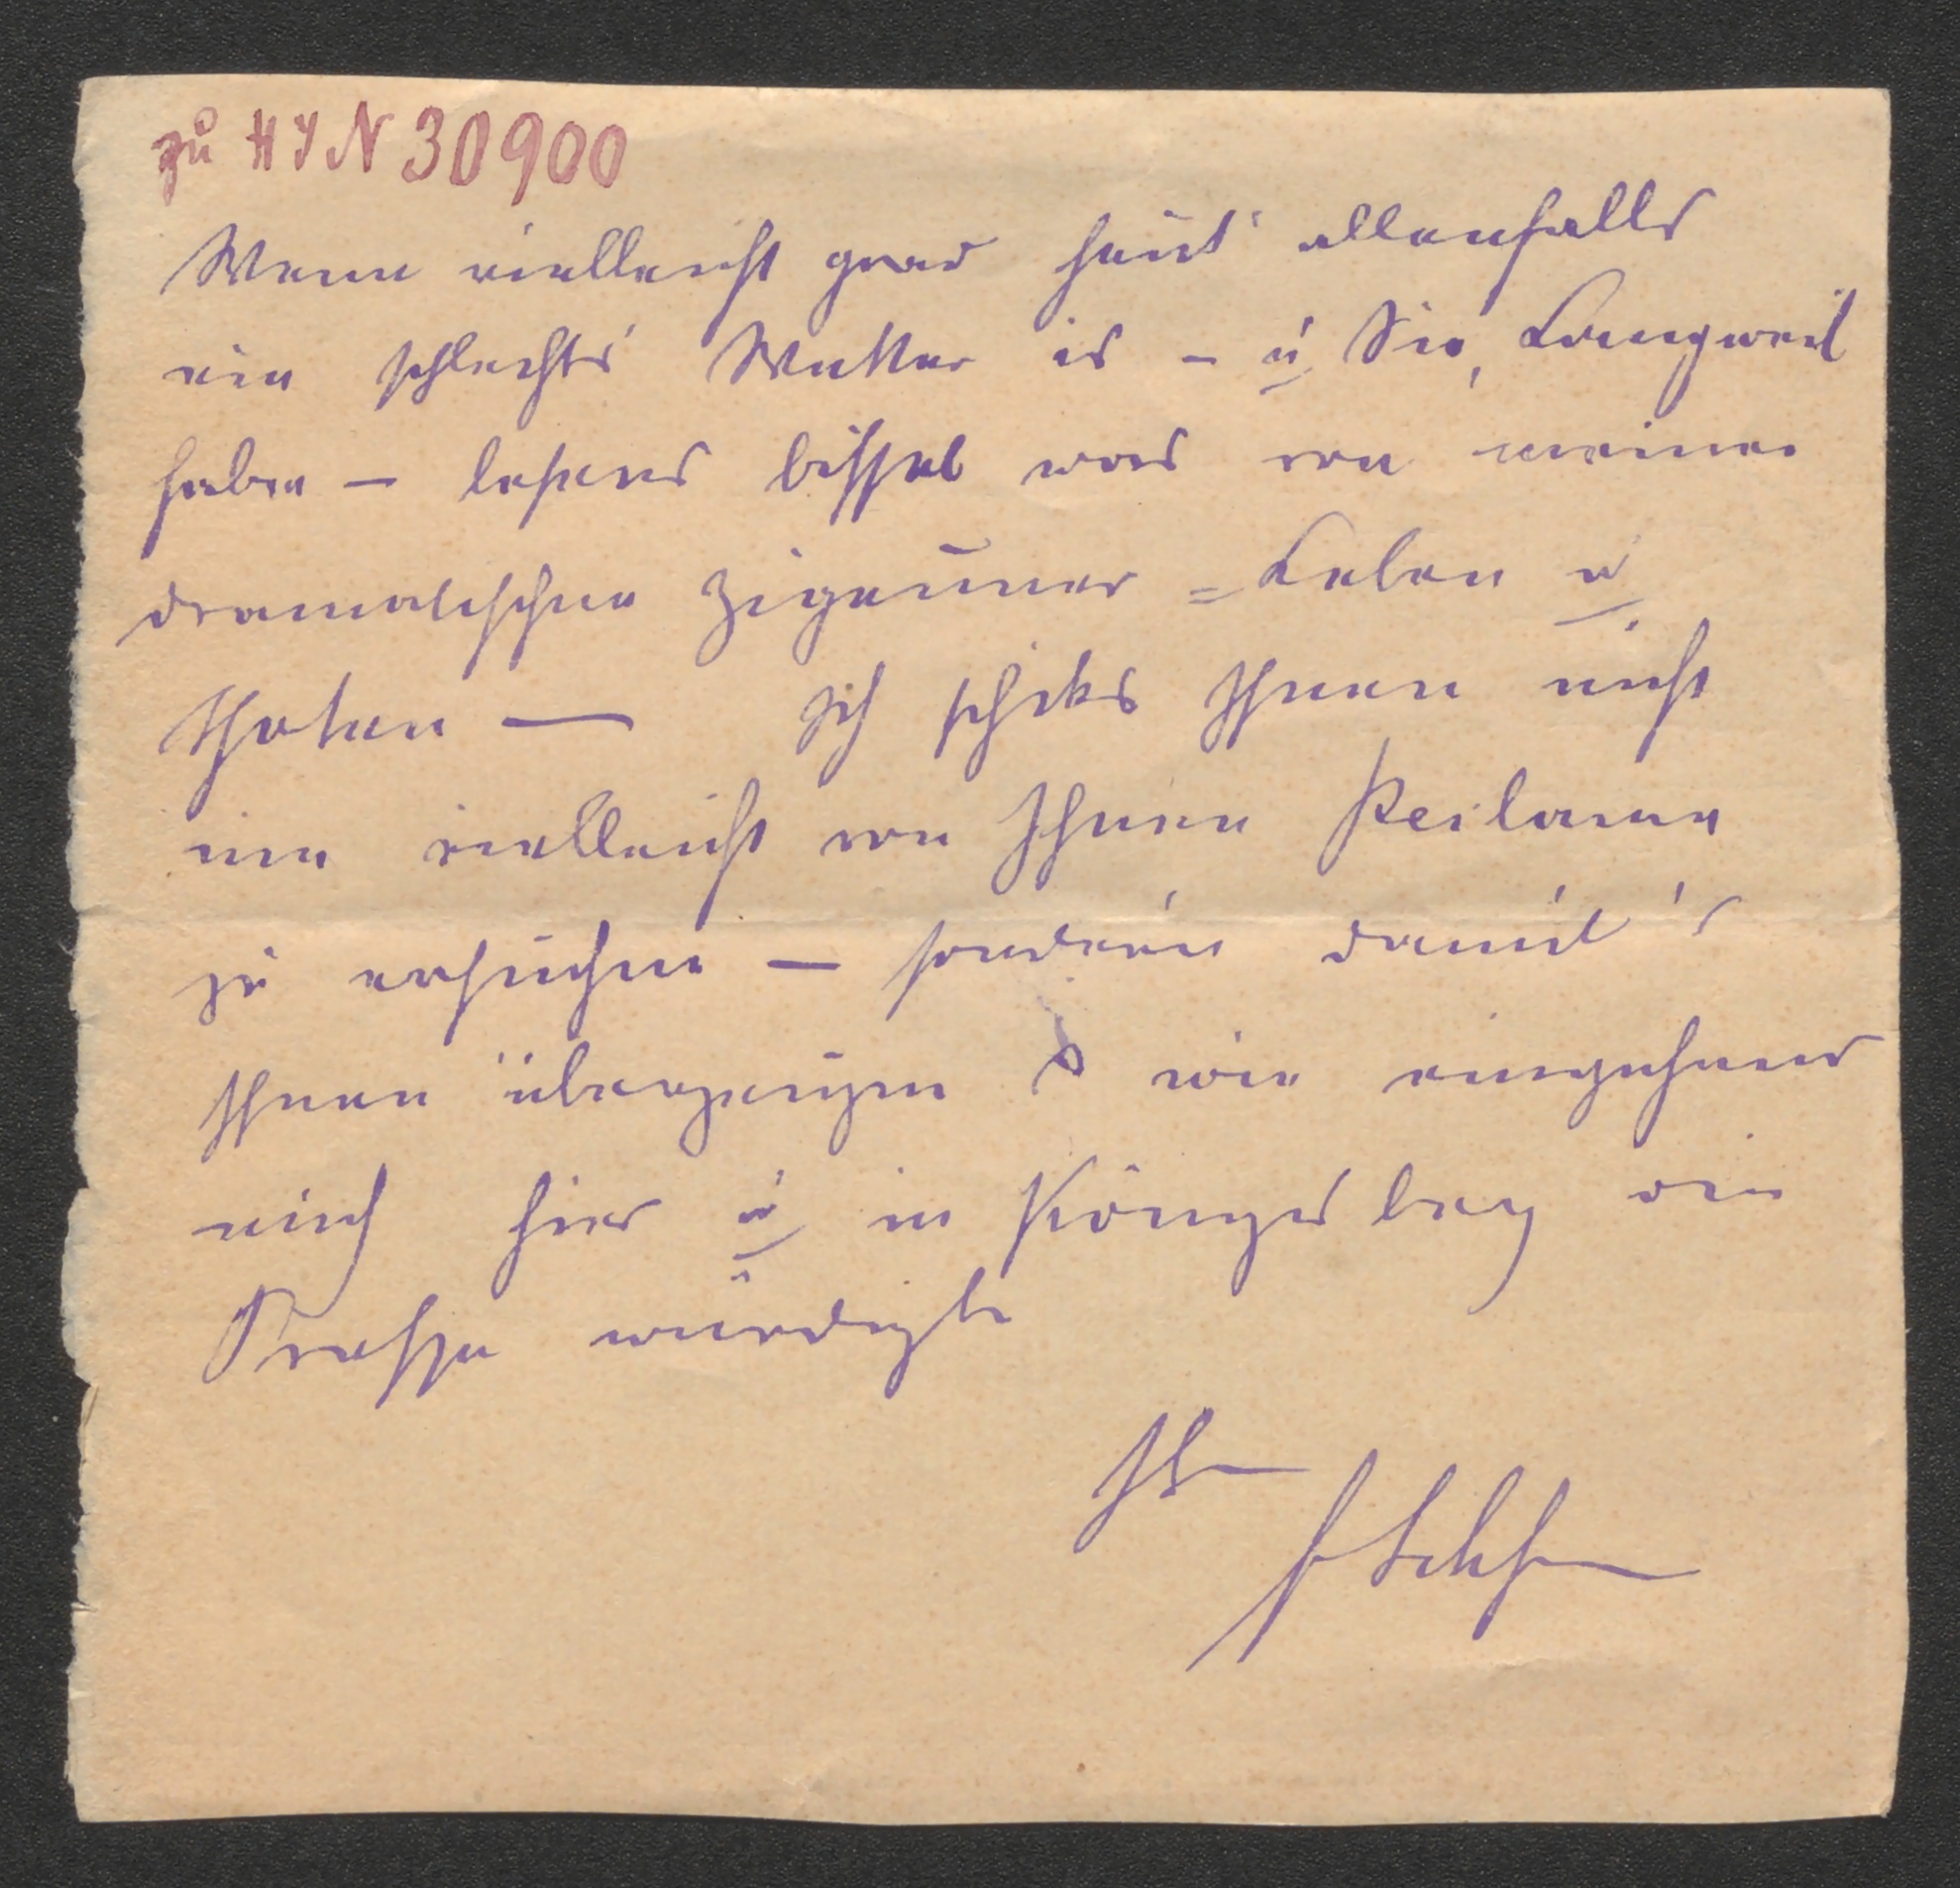 zu H I N 30900
Wenn vielleicht grad heut' allenfalls
ein schlechts' Wetter is – u Sie, Langweil
haben – lesens bissel was von meinen
dramatischen Zigeuner=Leben u
Thaten — Ich schiks Ihnen nicht
um vielleicht von Ihnen Reilame
zu ersuchen — sondern damit's
Ihnen überzeugen wie eingehend
mich hier u in Königsberg die
Presse würdigte
Ihr